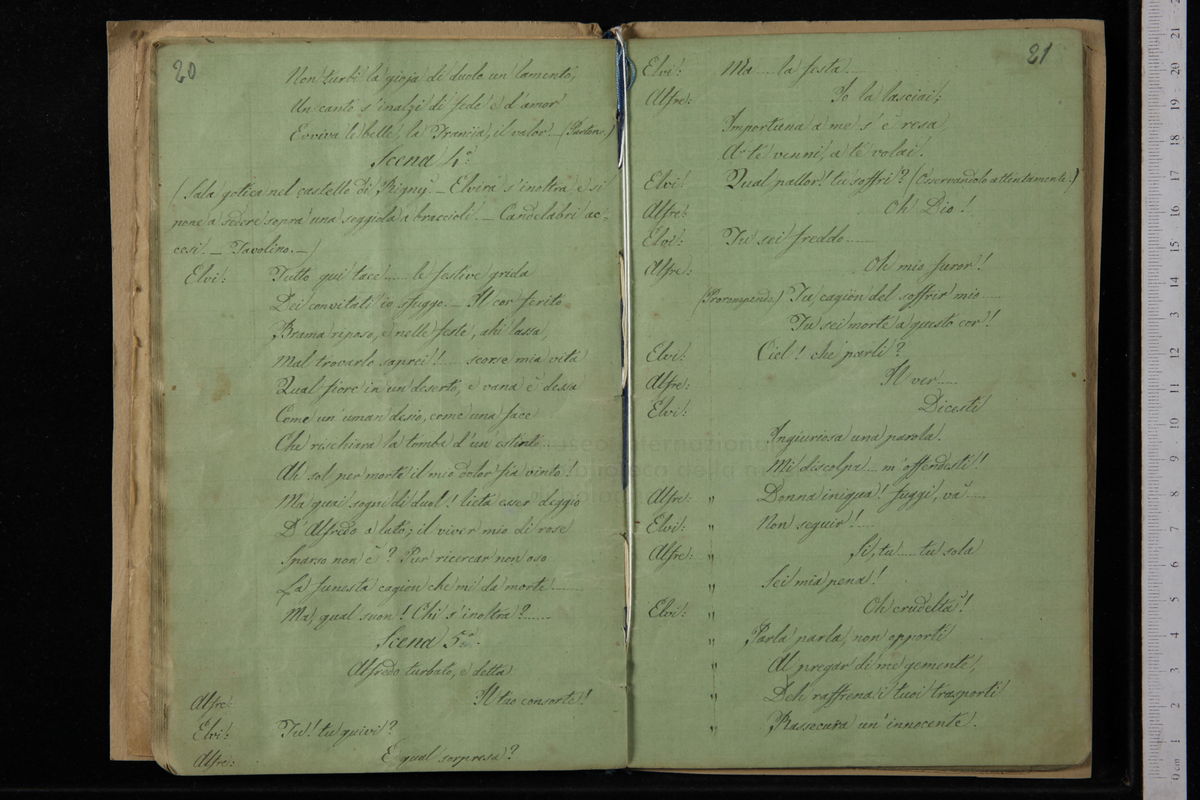 20
Non turbi la gioja di duolo un lamento,
Un canto s'inalzi di fede e d'amor
Evviva le belle, la Francia, il valor. (Partono.)
Scena 4.ª
(Sala gotica nel castello di Rigny. – Elvira s'inoltra, e si
pone a sedere sopra una seggiola a braccioli. – Candelabri ac-
cesi. – Tavolino. –)
Elvi: Tutto qui tace..... le festive grida
Dei convitati io sfuggo. – Il cor ferito
Brama riposo, e nelle feste, ahi lassa,
Mal trovarlo saprei!..... scorse mia vita
Qual fiore in un deserto, e vana è dessa
Come un uman desio, come una face
Che rischiara la tomba d'un estinto...
Ah sol per morte il mio dolor fia vinto!
Ma quai sogni di duol! lieta esser deggio
D'Alfredo a lato; il viver mio di rose
Sparso non è? Pur ricercar non oso
La funesta cagion che mi dà morte.......
Ma, qual suon! Chi s'inoltra?.......
Scena 5.ª
Alfredo turbato, e detta
Alfre: Il tuo consorte!
Elvi: Tu! tu quivi?
Alfre: E qual sorpresa?
21
Elvi: Ma..... la festa.....
Alfre: Io la lasciai;
Importuna a me s'è resa,
A te venni, a te volai.
Elvi: Qual pallor! tu soffri? (Osservandolo attentamente.)
Alfre: Oh Dio!
Elvi: Tu sei freddo.......
Alfre: Oh mio furor!!
(Prorompendo.) Tu cagion del soffrir mio.....
Tu sei morte a questo cor!
Elvi: Ciel! che parli?
Alfre: Il ver.....
Elvi: Dicesti
Ingiuriosa una parola.
Mi discolpa... m'offendesti!
Alfre: „ Donna iniqua! fuggi, va.....
Elvi: „ Non seguir!.....
Alfre: „ Sì, tu..... tu sola
„ Sei mia pena!
Elvi: „ Oh crudeltà!
„ Parla parla, non opporti
„ Al pregar di me gemente,
„ Deh raffrena i tuoi trasporti
„ Rassecura un'innocente.